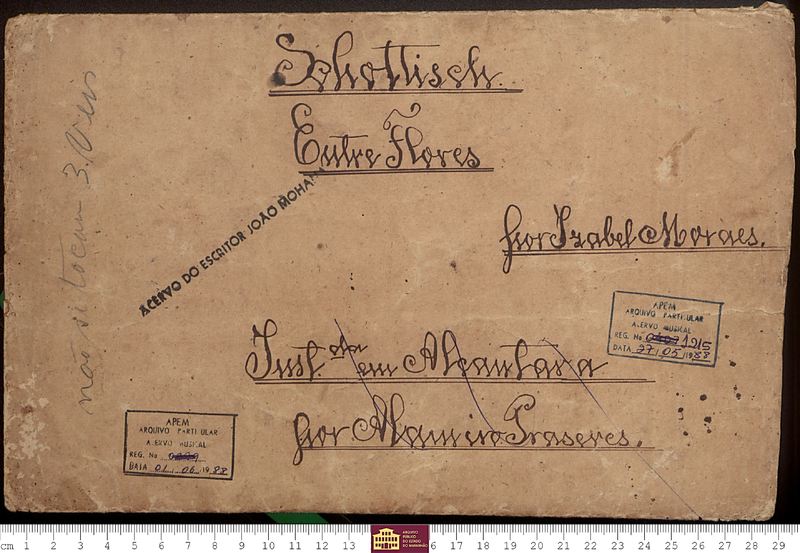 Schottisch.
Entre Flores
por Izabel Moraes.
ACERVO DO ESCRITOR JOÃO MOHA
Inst em Alcantara
por Alamiro Prazeres.
não si tocam 3.
APEM
ARQUIVO PARTICULAR
ACERVO MUSICAL
REG. No 1215
DATA 27 05 1988
APEM
ARQUIVO PARTICULAR
ACERVO MUSICAL
REG. No
DATA 01 06 1988
cm 1 2 3 4 5 6 7 8 9 10 11 12 13 6 17 18 19 20 21 22 23 24 25 26 27 28 29
ARQUIVO
PÚBLICO
DO ESTADO
DO MARANHÃO